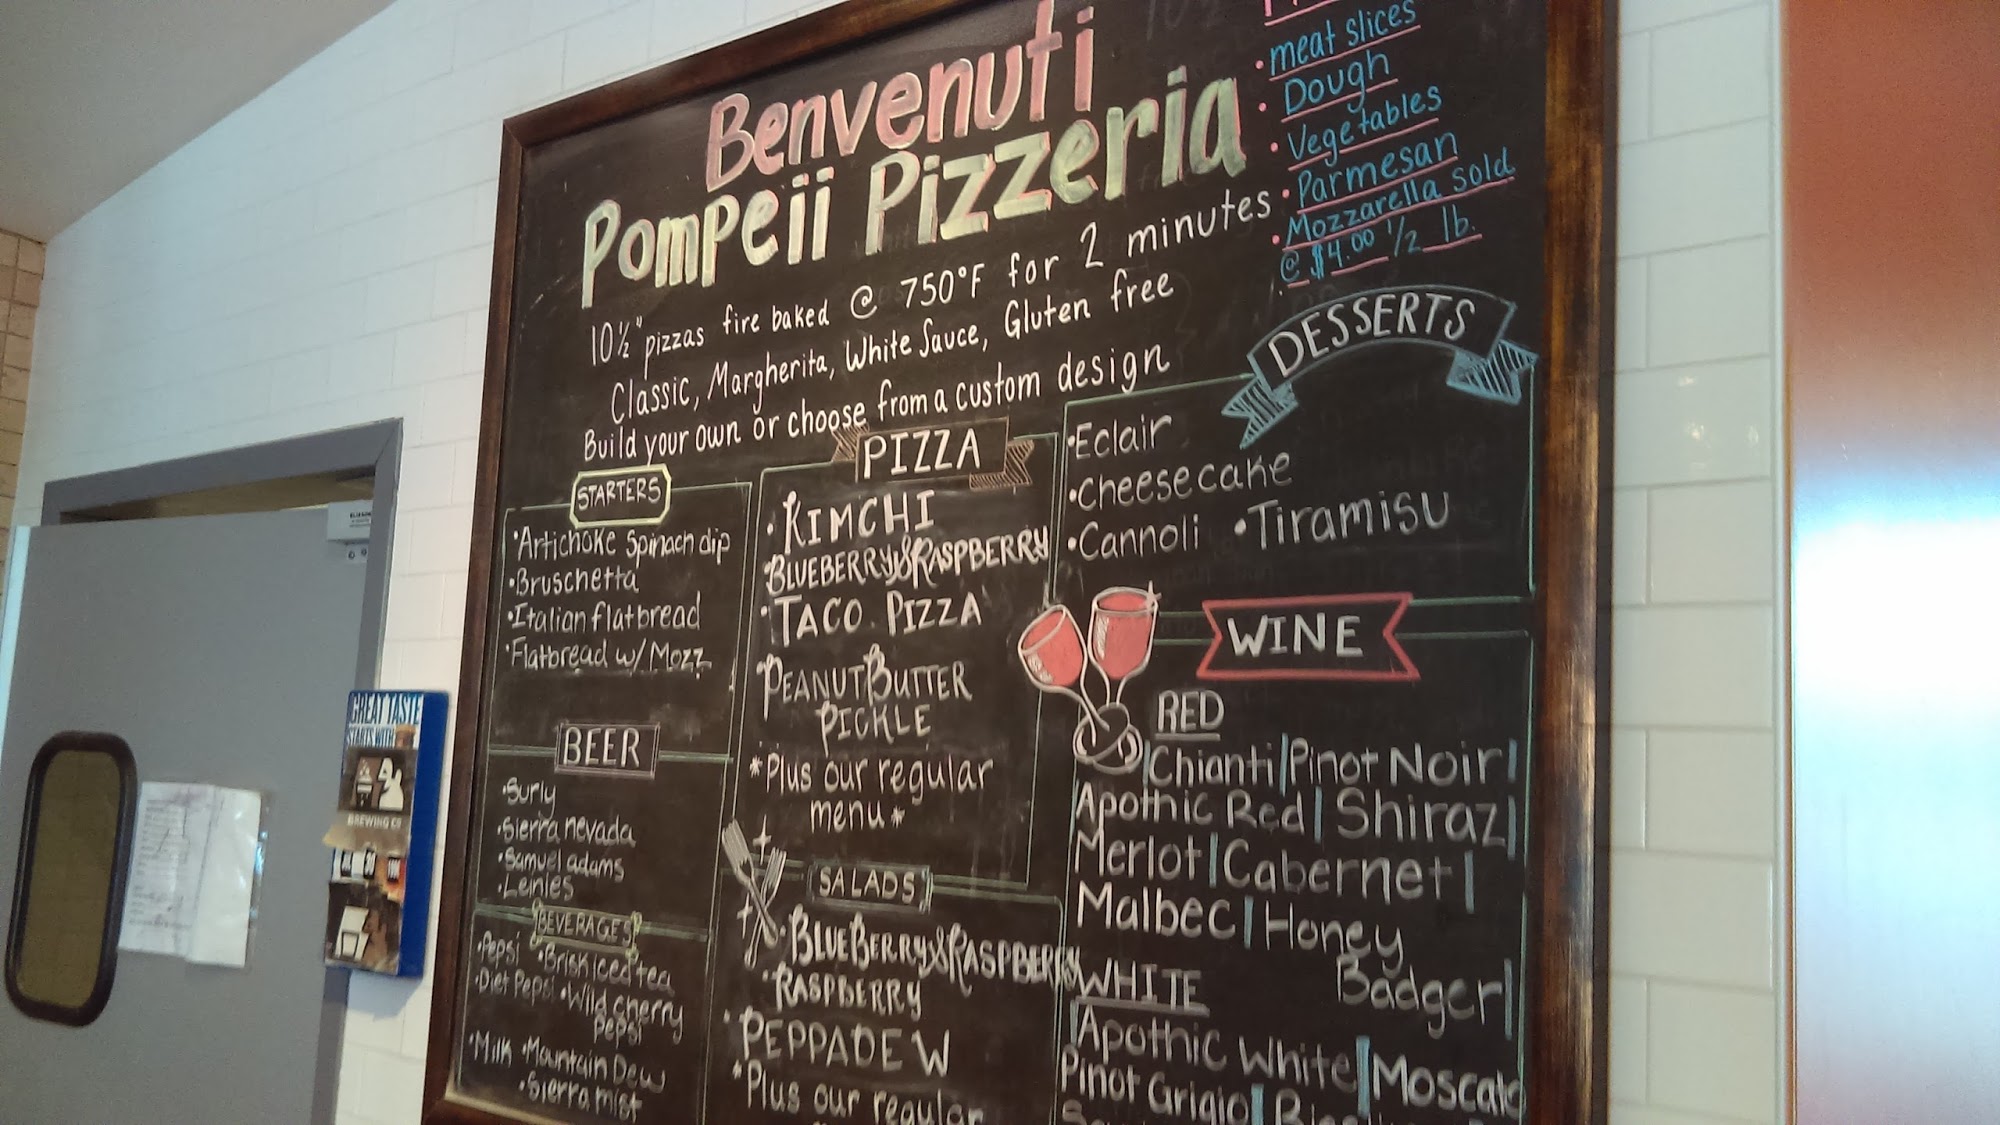 Benvenuti
Pompeii Pizzeria
10½" pizzas fire baked @ 750°F for 2 minutes
Classic, Margherita, White Sauce, Gluten free
Build your own or choose from a custom design
• meat slices
• Dough
• Vegetables
• Parmesan
• Mozzarella sold
@ $4.00 1/2 lb.
STARTERS
• Artichoke Spinach dip
• Bruschetta
• Italian flatbread
• Flatbread w/ Mozz
BEER
• Surly
• Sierra nevada
• Samuel adams
• Leinies
BEVERAGES
• Pepsi • Brisk Iced tea
• Diet Pepsi • Wild cherry
Pepsi
• Milk • Mountain Dew
• Sierra mist
PIZZA
• KIMCHI
• BLUEBERRY & RASPBERRY
• TACO PIZZA
• PEANUT BUTTER
PICKLE
*Plus our regular
menu*
SALADS
• BLUEBERRY & RASPBERRY
• RASPBERRY
• PEPPADEW
*Plus our regular
DESSERTS
• Eclair
• Cheesecake
• Cannoli • Tiramisu
WINE
RED
|Chianti|Pinot Noir|
Apothic Red|Shiraz|
Merlot|Cabernet|
Malbec|Honey
Badger|
WHITE
|Apothic White|Moscato
Pinot Grigio|
GREAT TASTE
STARTS WITH
BREWING CO